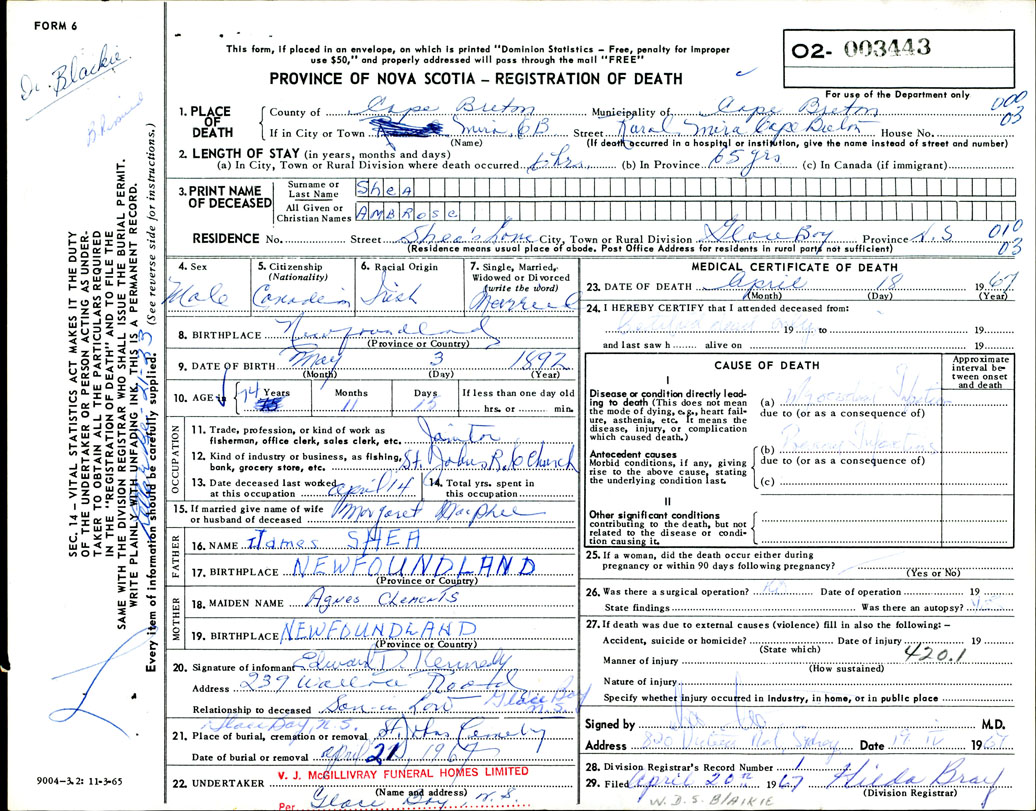 FORM 6
Dr. Blackie
This form, if placed in an envelope, on which is printed "Dominion Statistics – Free, penalty for improper
use $50," and properly addressed will pass through the mail "FREE"
O2- 003443
PROVINCE OF NOVA SCOTIA – REGISTRATION OF DEATH
For use of the Department only
000
03
1. PLACE OF DEATH
County of Cape Breton Municipality of Cape Breton
If in City or Town Mira, CB Street Rural Mira Cape Breton House No.
(Name) (If death occurred in a hospital or institution, give the name instead of street and number)
2. LENGTH OF STAY (in years, months and days)
(a) In City, Town or Rural Division where death occurred hrs. (b) In Province 65 yrs (c) In Canada (if immigrant)
3. PRINT NAME OF DECEASED
Surname or Last Name SHEA
All Given or Christian Names AMBROSE
RESIDENCE No. Street Shea's Lane City, Town or Rural Division Glace Bay Province N.S
(Residence means usual place of abode. Post Office Address for residents in rural parts not sufficient)
010
03
4. Sex Male
5. Citizenship (Nationality) Canadian
6. Racial Origin Irish
7. Single, Married, Widowed or Divorced (write the word) Married
8. BIRTHPLACE Newfoundland
(Province or Country)
9. DATE OF BIRTH May 3 1892
(Month) (Day) (Year)
10. AGE 74 Years Months 11 Days If less than one day old hrs. or min.
OCCUPATION
11. Trade, profession, or kind of work as fisherman, office clerk, sales clerk, etc. Jaintor
12. Kind of industry or business, as fishing, bank, grocery store, etc. St. Johns R.C Church
13. Date deceased last worked at this occupation April 14
14. Total yrs. spent in this occupation
15. If married give name of wife or husband of deceased Margaret MacPhee
FATHER
16. NAME James SHEA
17. BIRTHPLACE NEWFOUNDLAND
(Province or Country)
MOTHER
18. MAIDEN NAME Agnes Clements
19. BIRTHPLACE NEWFOUNDLAND
(Province or Country)
20. Signature of informant Edward D. Kennedy
Address 239 Wallace Road Glace Bay N.S.
Relationship to deceased Son-in Law
Glace Bay, N.S.
21. Place of burial, cremation or removal St. Johns Cemetery
Date of burial or removal April 21, 1967
22. UNDERTAKER V. J. McGILLIVRAY FUNERAL HOMES LIMITED
(Name and address)
Per Glace Bay N.S.
MEDICAL CERTIFICATE OF DEATH
23. DATE OF DEATH April 18 1967
(Month) (Day) (Year)
24. I HEREBY CERTIFY that I attended deceased from:
19 to 19
and last saw h alive on 19
CAUSE OF DEATH
Approximate interval between onset and death
I
Disease or condition directly leading to death (This does not mean the mode of dying, e.g., heart failure, asthenia, etc. It means the disease, injury, or complication which caused death.)
(a) Myocardial Infarction
due to (or as a consequence of)
Antecedent causes
Morbid conditions, if any, giving rise to the above cause, stating the underlying condition last.
(b)
due to (or as a consequence of)
(c)
II
Other significant conditions
contributing to the death, but not related to the disease or condition causing it.
25. If a woman, did the death occur either during
pregnancy or within 90 days following pregnancy?
(Yes or No)
26. Was there a surgical operation? No Date of operation 19
State findings Was there an autopsy?
27. If death was due to external causes (violence) fill in also the following: –
Accident, suicide or homicide? Date of injury 19
(State which)
420.1
Manner of injury
(How sustained)
Nature of injury
Specify whether injury occurred in industry, in home, or in public place
Signed by M.D.
Address Sydney Date 19 IV 1967
28. Division Registrar's Record Number 1
29. Filed April 20th 1967 Hilda Bray
(Division Registrar)
W.D.S BlAIKIE
SEC. 14 – VITAL STATISTICS ACT MAKES IT THE DUTY
OF THE UNDERTAKER OR PERSON ACTING AS UNDER-
TAKER TO OBTAIN ALL THE PARTICULARS REQUIRED
IN THE "REGISTRATION OF DEATH" AND TO FILE THE
SAME WITH THE DIVISION REGISTRAR WHO SHALL ISSUE THE BURIAL PERMIT.
WRITE PLAINLY WITH UNFADING INK. THIS IS A PERMANENT RECORD.
Every item of information should be carefully supplied. (See reverse side for instructions.)
9004-3.2: 11-3-65